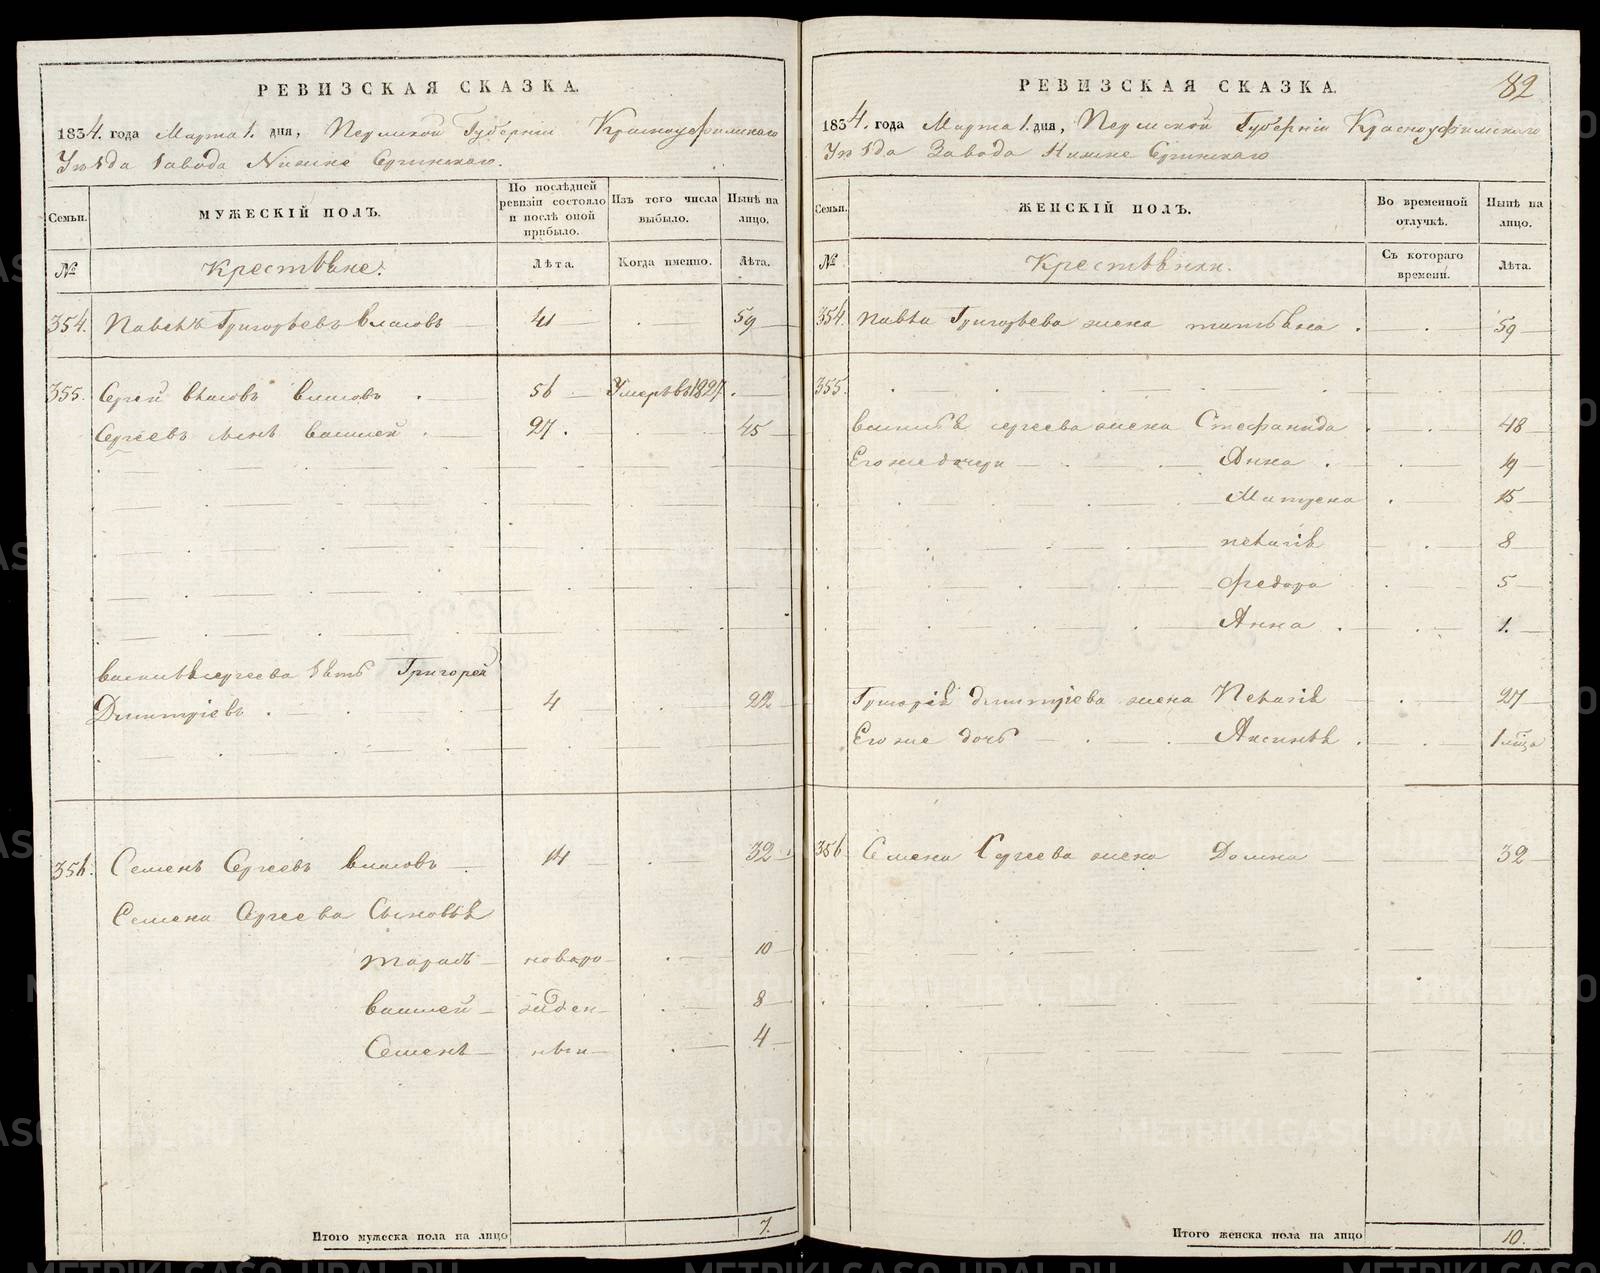 РЕВИЗСКАЯ СКАЗКА.
1834. года Марта 1. дня, Пермской Губерніи Красноуфимскаго
Уѣзда Завода Нижне Сергинскаго.
Семьи. МУЖЕСКІЙ ПОЛЪ. По послѣдней ревизіи состояло и послѣ оной прибыло. Изъ того числа выбыло. Нынѣ на лицо.
№ Крестьяне. Лѣта. Когда именно. Лѣта.
354. Павелъ Григорьевъ Власовъ 41 59
355. Сергей Власовъ 56 Умеръ въ 1827
Сергеевъ сынъ Василей 27. 45
Василья Сергеева зять Григорей
Дмитріевъ. 4 22
356. Семенъ Сергеевъ Власовъ 14 32
Семена Сергеева Сыновья
Тарасъ новоро 10
Василей жден 8
Семенъ ныи 4
Итого мужеска пола на лицо 7.
82
РЕВИЗСКАЯ СКАЗКА.
1834. года Марта 1. дня, Пермской Губерніи Красноуфимскаго
Уѣзда Завода Нижне Сергинскаго
Семьи. ЖЕНСКІЙ ПОЛЪ. Во временной отлучкѣ. Нынѣ на лицо.
№ Крестьянки. Съ котораго времени. Лѣта.
354. Павла Григорьева жена Татьяна 59
355.
Василья Сергеева жена Стефанида 48
Его же дочери Анна 19
Матрена 15
Пелагія 8
Федора 5
Анна 1.
Григорія Дмитріева жена Пелагія 27
Его же дочь Аксинья 1
356 Семена Сергеева жена Домна 32
Итого женска пола на лицо 10.
METRIKI.GASO-URAL.RU